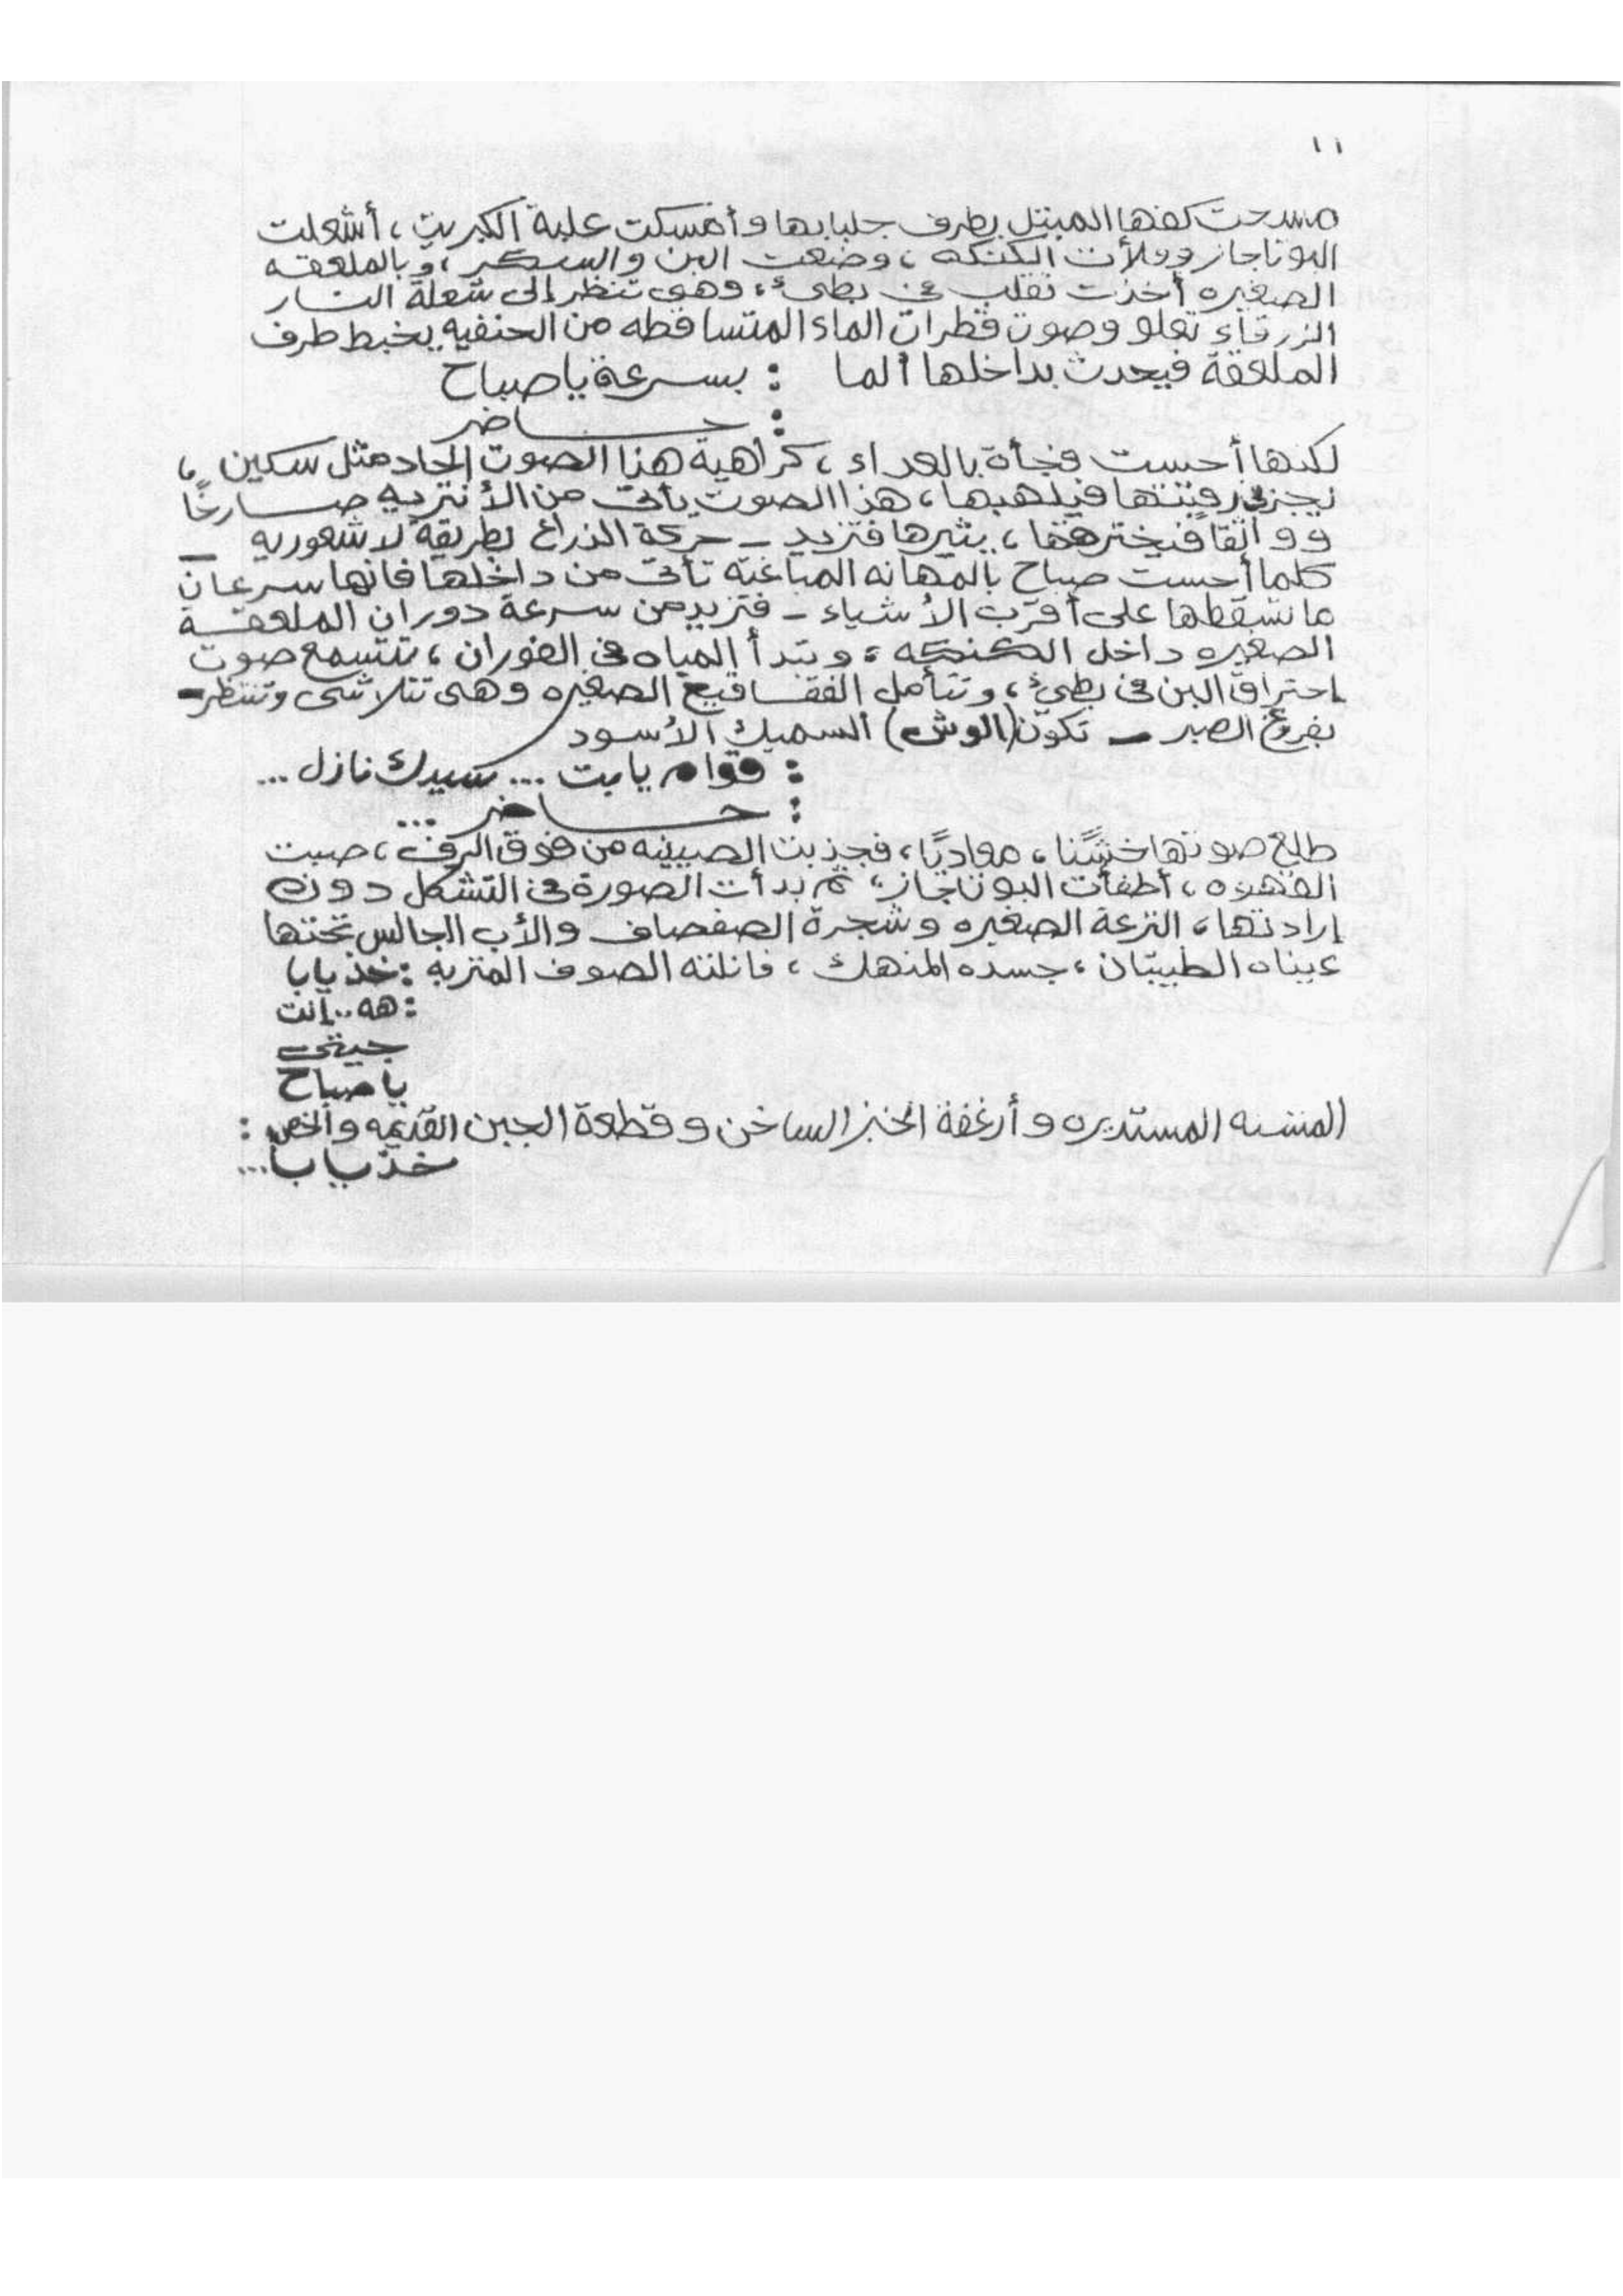 ١١
مسحت كفها المبتل بطرف جلبابها وأمسكت علبة الكبريت ، أشعلت
البوتاجاز وملأت الكنكه ، وضعت البن والسكر ، وبالملعقه
الصغيره أخذت تقلب فى بطئ ، وهى تنظر إلى شعلة النار
الزرقاء تعلو وصوت قطرات الماء المتساقطه من الحنفيه يخبط طرف
الملعقة فيحدث بداخلها ألما : بسرعة يا صباح
: حـــاضر
لكنها أحست فجأة بالعداء ، كراهية هذا الصوت الحاد مثل سكين ،
يجز رقبتها فيلهبها ، هذا الصوت يأتى من الأنتريه صـارخًا
وواثقاً فيخترقها ، يثيرها فتزيد – حركة الذراع بطريقة لا شعوريه –
كلما أحست صباح بالمهانه المباغته تأتى من داخلها فانها سرعان
ما تسقطها على أقرب الأشياء – فتزيد من سرعة دوران الملعقـة
الصغيره داخل الكنكه ، وتبدأ المياه فى الفوران ، تتسمع صوت
احتراق البن فى بطئ ، وتتأمل الفقـاقيع الصغيره وهى تتلاشى وتنتظر –
بفروغ الصبر – تكوّن (الوش) السميك الأسود
: قوام يا بت ... سيدك نازل ...
: حـــاضر ...
طلع صوتها خشنًا ، معاديًا ، فجذبت الصينيه من فوق الرف ، صبت
القهوه ، أطفأت البوتاجاز ، ثم بدأت الصورة فى التشكل دون
إرادتها ، الترعة الصغيره وشجرة الصفصاف والأب الجالس تحتها
عيناه الطيبتان ، جسده المنهك ، فانلته الصوف المتربه : خد يابا
: هه .. إنت
جيتى
يا صباح
المشنه المستديره وأرغفة الخبز الساخن وقطعة الجبن القديمه والخص :
خد يابا ...